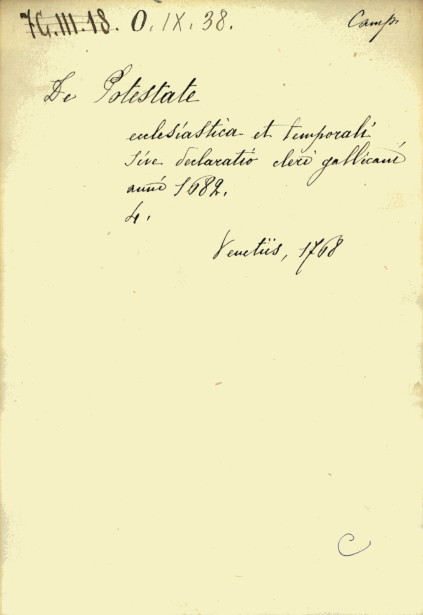 7G.III.18. O.IX.38. Camp.
De Potestate
ecclesiastica et temporali
sive declaratio cleri gallicani
anni 1682.
4.
Venetiis, 1768
C